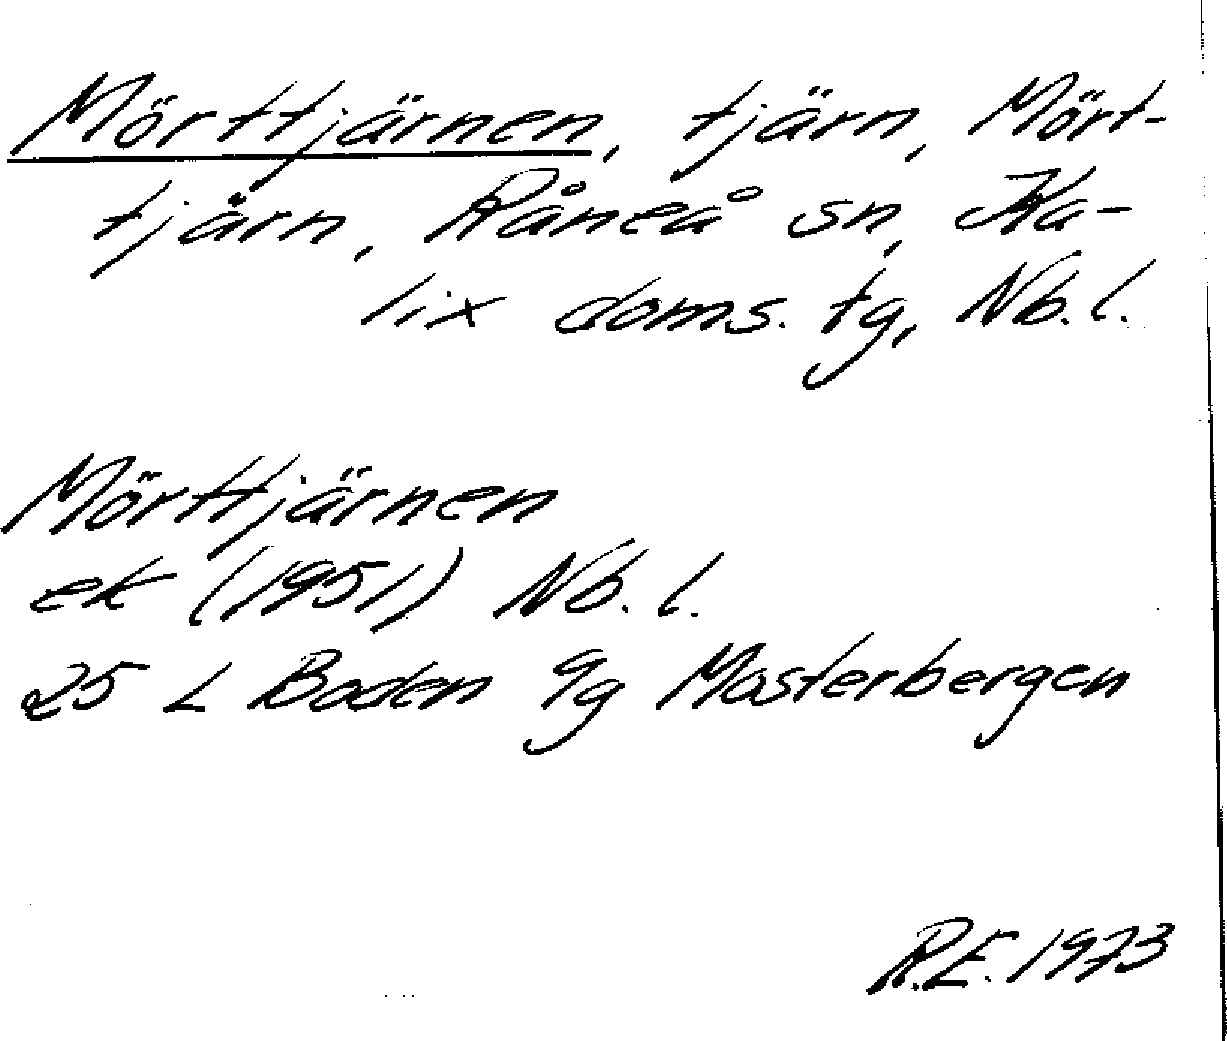 Mörttjärnen, tjärn, Mört-
tjärn, Råneå sn, Ka-
lix doms. tg, Nb. l.
Mörttjärnen
ek (1951) Nb. l.
25 L Boden 9g Mosterbergen
R.E. 1973